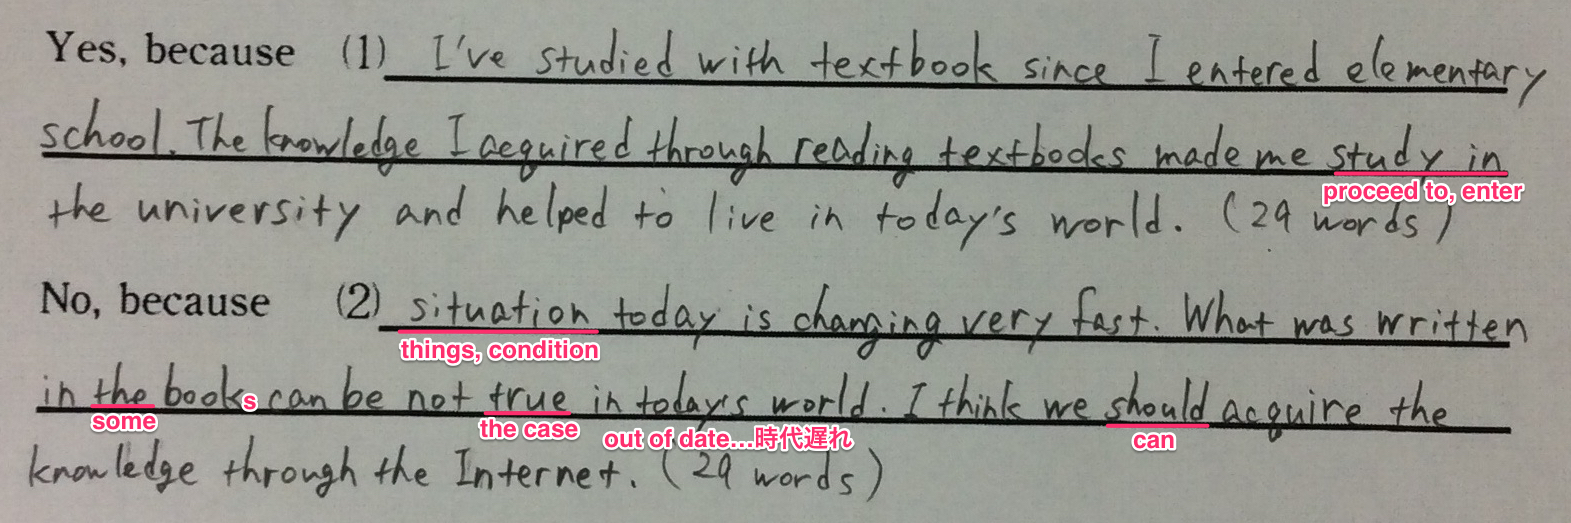 Yes, because (1) I've studied with textbook since I entered elementary
school. The knowledge I acquired through reading textbooks made me study in
proceed to, enter
the university and helped to live in today's world. (29 words)
No, because (2) situation today is changing very fast. What was written
things, condition
in the books can be not true in today's world. I think we should acquire the
some the case out of date…時代遅れ can
knowledge through the Internet. (29 words)